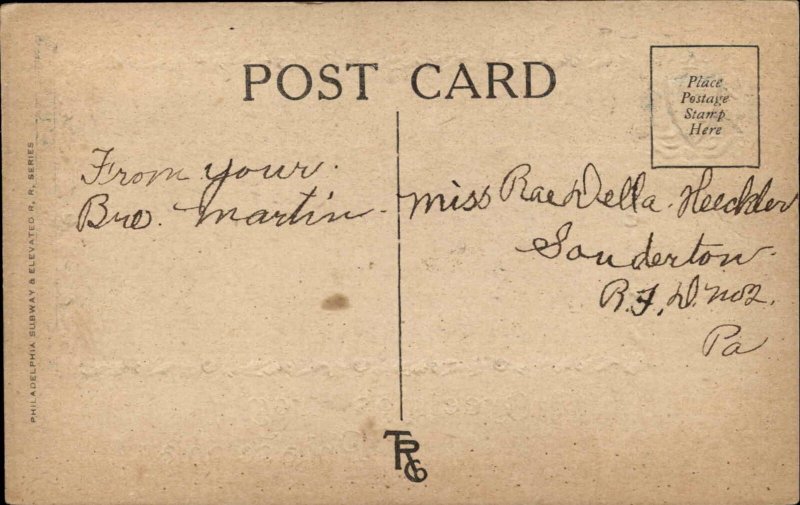 POST CARD
Place
Postage
Stamp
Here
From your
Bro. Martin
Miss Rae Della Heckler
Souderton
R.F.D. No 2.
Pa
PHILADELPHIA SUBWAY & ELEVATED R. R. SERIES
TRG